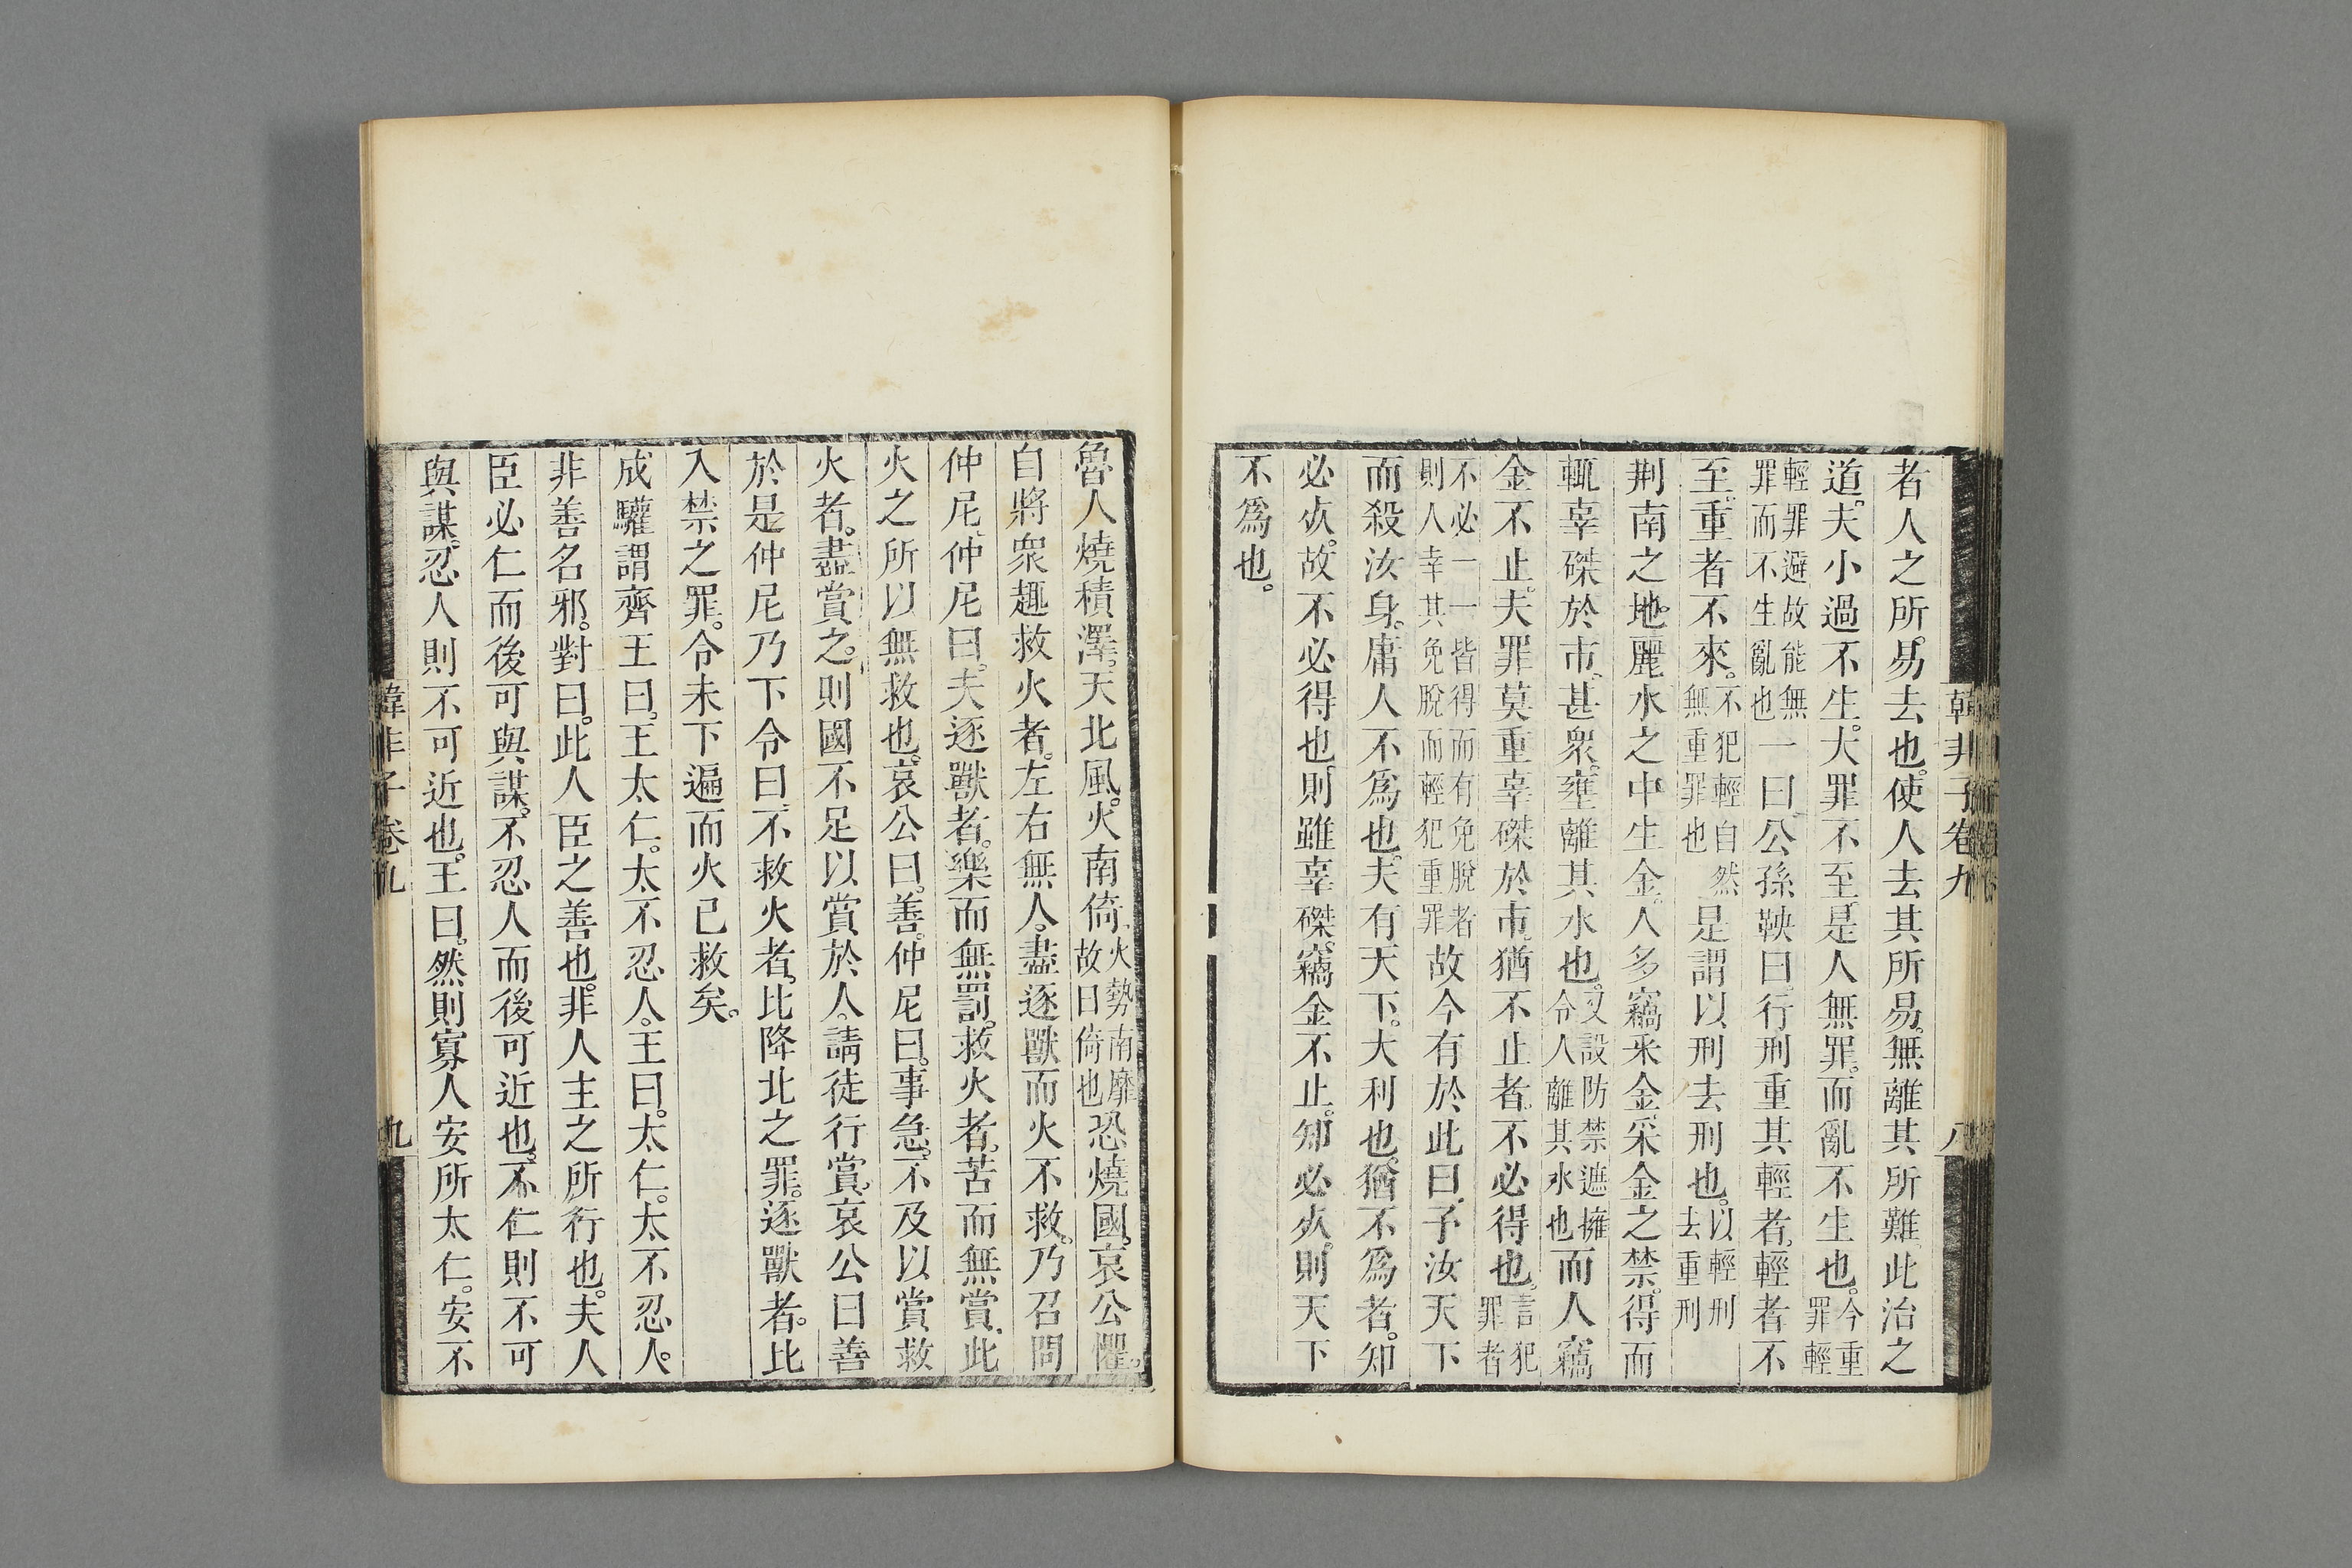 韓非子卷九 八
者人之所易去也。使人去其所易。無離其所難。此治之
道。夫小過不生。大罪不至。是人無罪。而亂不生也。今重罪輕
輕罪避故能無罪而不生亂也一曰。公孫鞅曰。行刑重其輕者。輕者不
至。重者不來。不犯輕自然無重罪也是謂以刑去刑也。以輕刑去重刑
荆南之地。麗水之中生金。人多竊采金。采金之禁。得而
輒辜磔於市。甚衆。壅離其水也。又設防禁遮擁令人離其水也而人竊
金不止。夫罪莫重辜磔於市。猶不止者。不必得也。言犯罪者
不必一一皆得而有免脫者則人幸其免脫而輕犯重罪故今有於此曰。予汝天下
而殺汝身。庸人不爲也。夫有天下。大利也。猶不爲者。知
必死。故不必得也。則雖辜磔。竊金不止。知必死。則天下
不爲也。
魯人燒積澤。天北風。火南倚。火勢南靡故曰倚也恐燒國。哀公懼。
自將衆趣救火者。左右無人。盡逐獸而火不救。乃召問
仲尼。仲尼曰。夫逐獸者。樂而無罰。救火者。苦而無賞。此
火之所以無救也。哀公曰。善。仲尼曰。事急。不及以賞救
火者。盡賞之。則國不足以賞於人。請徒行賞。哀公曰善
於是仲尼乃下令曰。不救火者。比降北之罪。逐獸者。比
入禁之罪。令未下遍而火已救矣。
成驩謂齊王曰。王太仁。太不忍人。王曰。太仁。太不忍人。
非善名邪。對曰。此人臣之善也。非人主之所行也。夫人
臣必仁而後可與謀。不忍人而後可近也。不仁則不可
與謀。忍人則不可近也。王曰。然則寡人安所太仁。安不
韓非子卷九 九